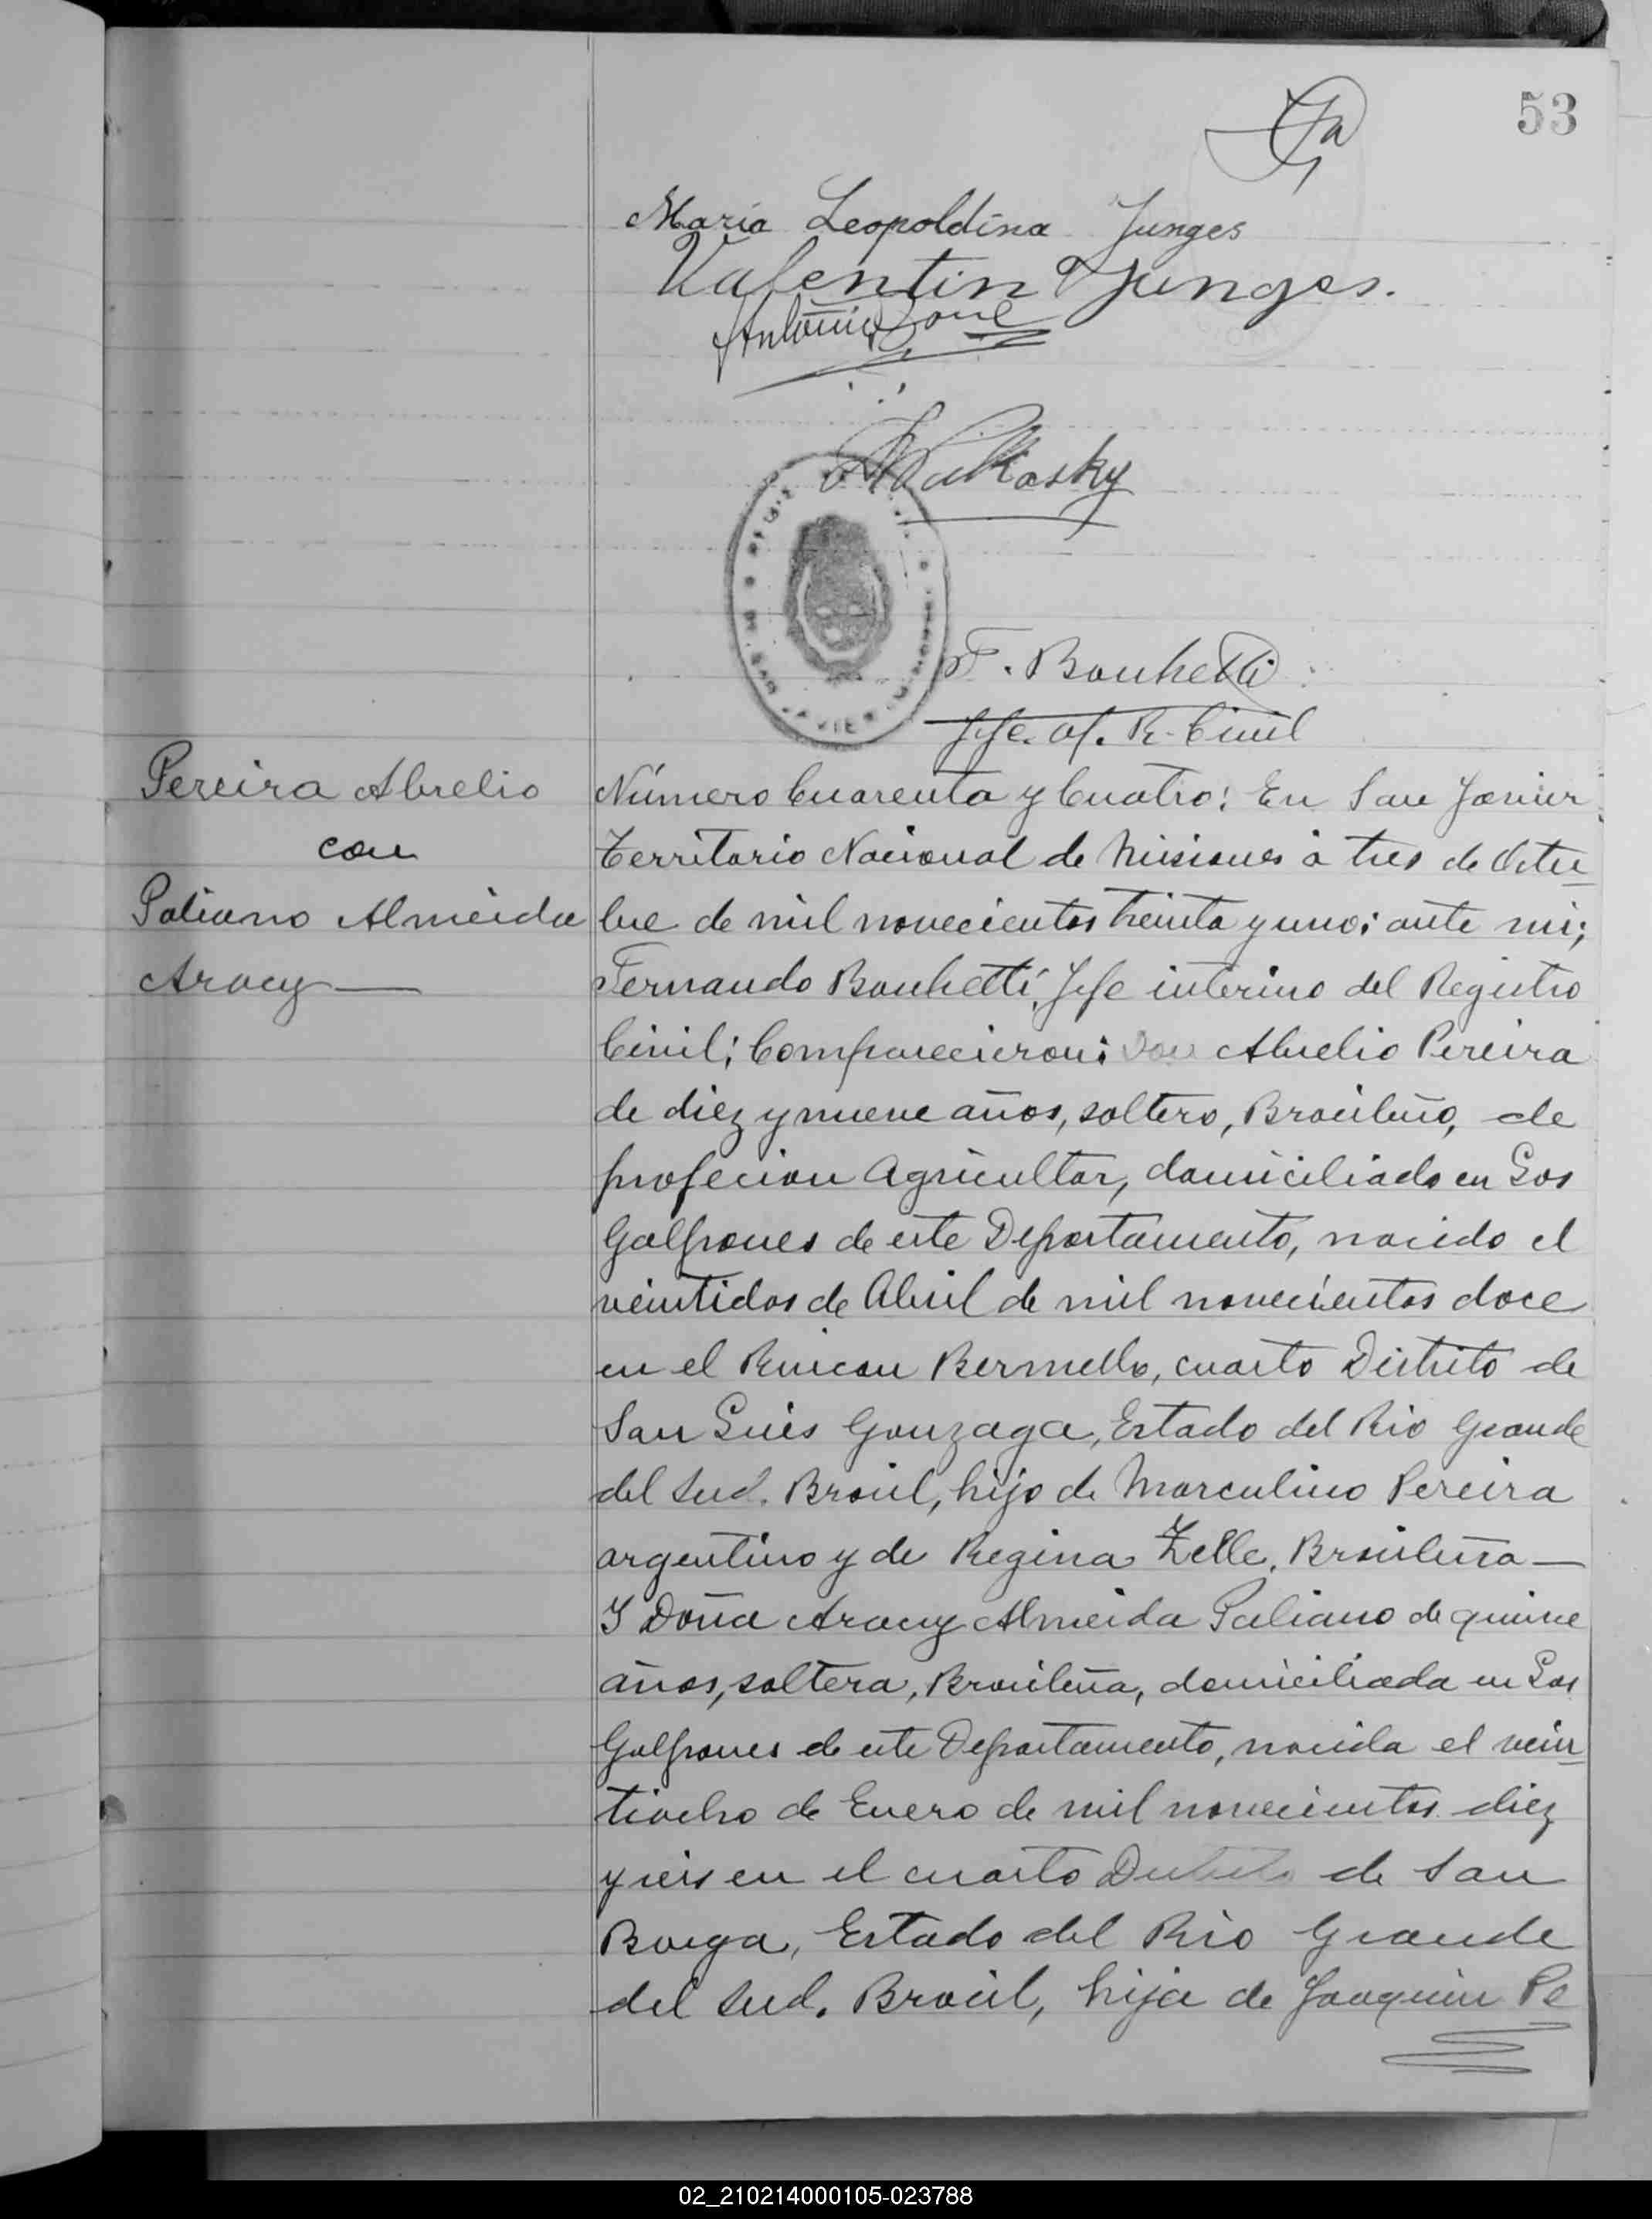 53
Maria Leopoldina Junges
Valentin Junges.
Antonio
F. Bonchetti
Jefe. of. R. Civil
Pereira Abrelio
con
Paliano Almeida
Aracy
Número Cuarenta y Cuatro: En San Javier
Territorio Nacional de Misiones á tres de Octu-
bre de mil novecientos treinta y uno; ante mi;
Fernando Bonchetti, Jefe interino del Registro
Civil; Comparecieron: Don Abrelio Pereira
de diez y nueve años, soltero, Brasileño, de
profecion Agricultor, domiciliado en Los
Galpones de este Departamento, nacido el
veintidos de Abril de mil novecientos doce
en el Rincon Bermello, cuarto Distrito de
San Luis Gonzaga, Estado del Rio Grande
del Sud. Brasil, hijo de Marculino Pereira
argentino y de Regina Zelle, Brasileña —
Y Doña Aracy Almeida Paliano de quince
años, soltera, Brasileña, domiciliada en Los
Galpones de este Departamento, nacida el vein-
tiocho de Enero de mil novecientos diez
y seis en el cuarto Distrito de San
Borga, Estado del Rio Grande
del Sud. Brasil, hija de Joaquin Pe
02_210214000105-023788